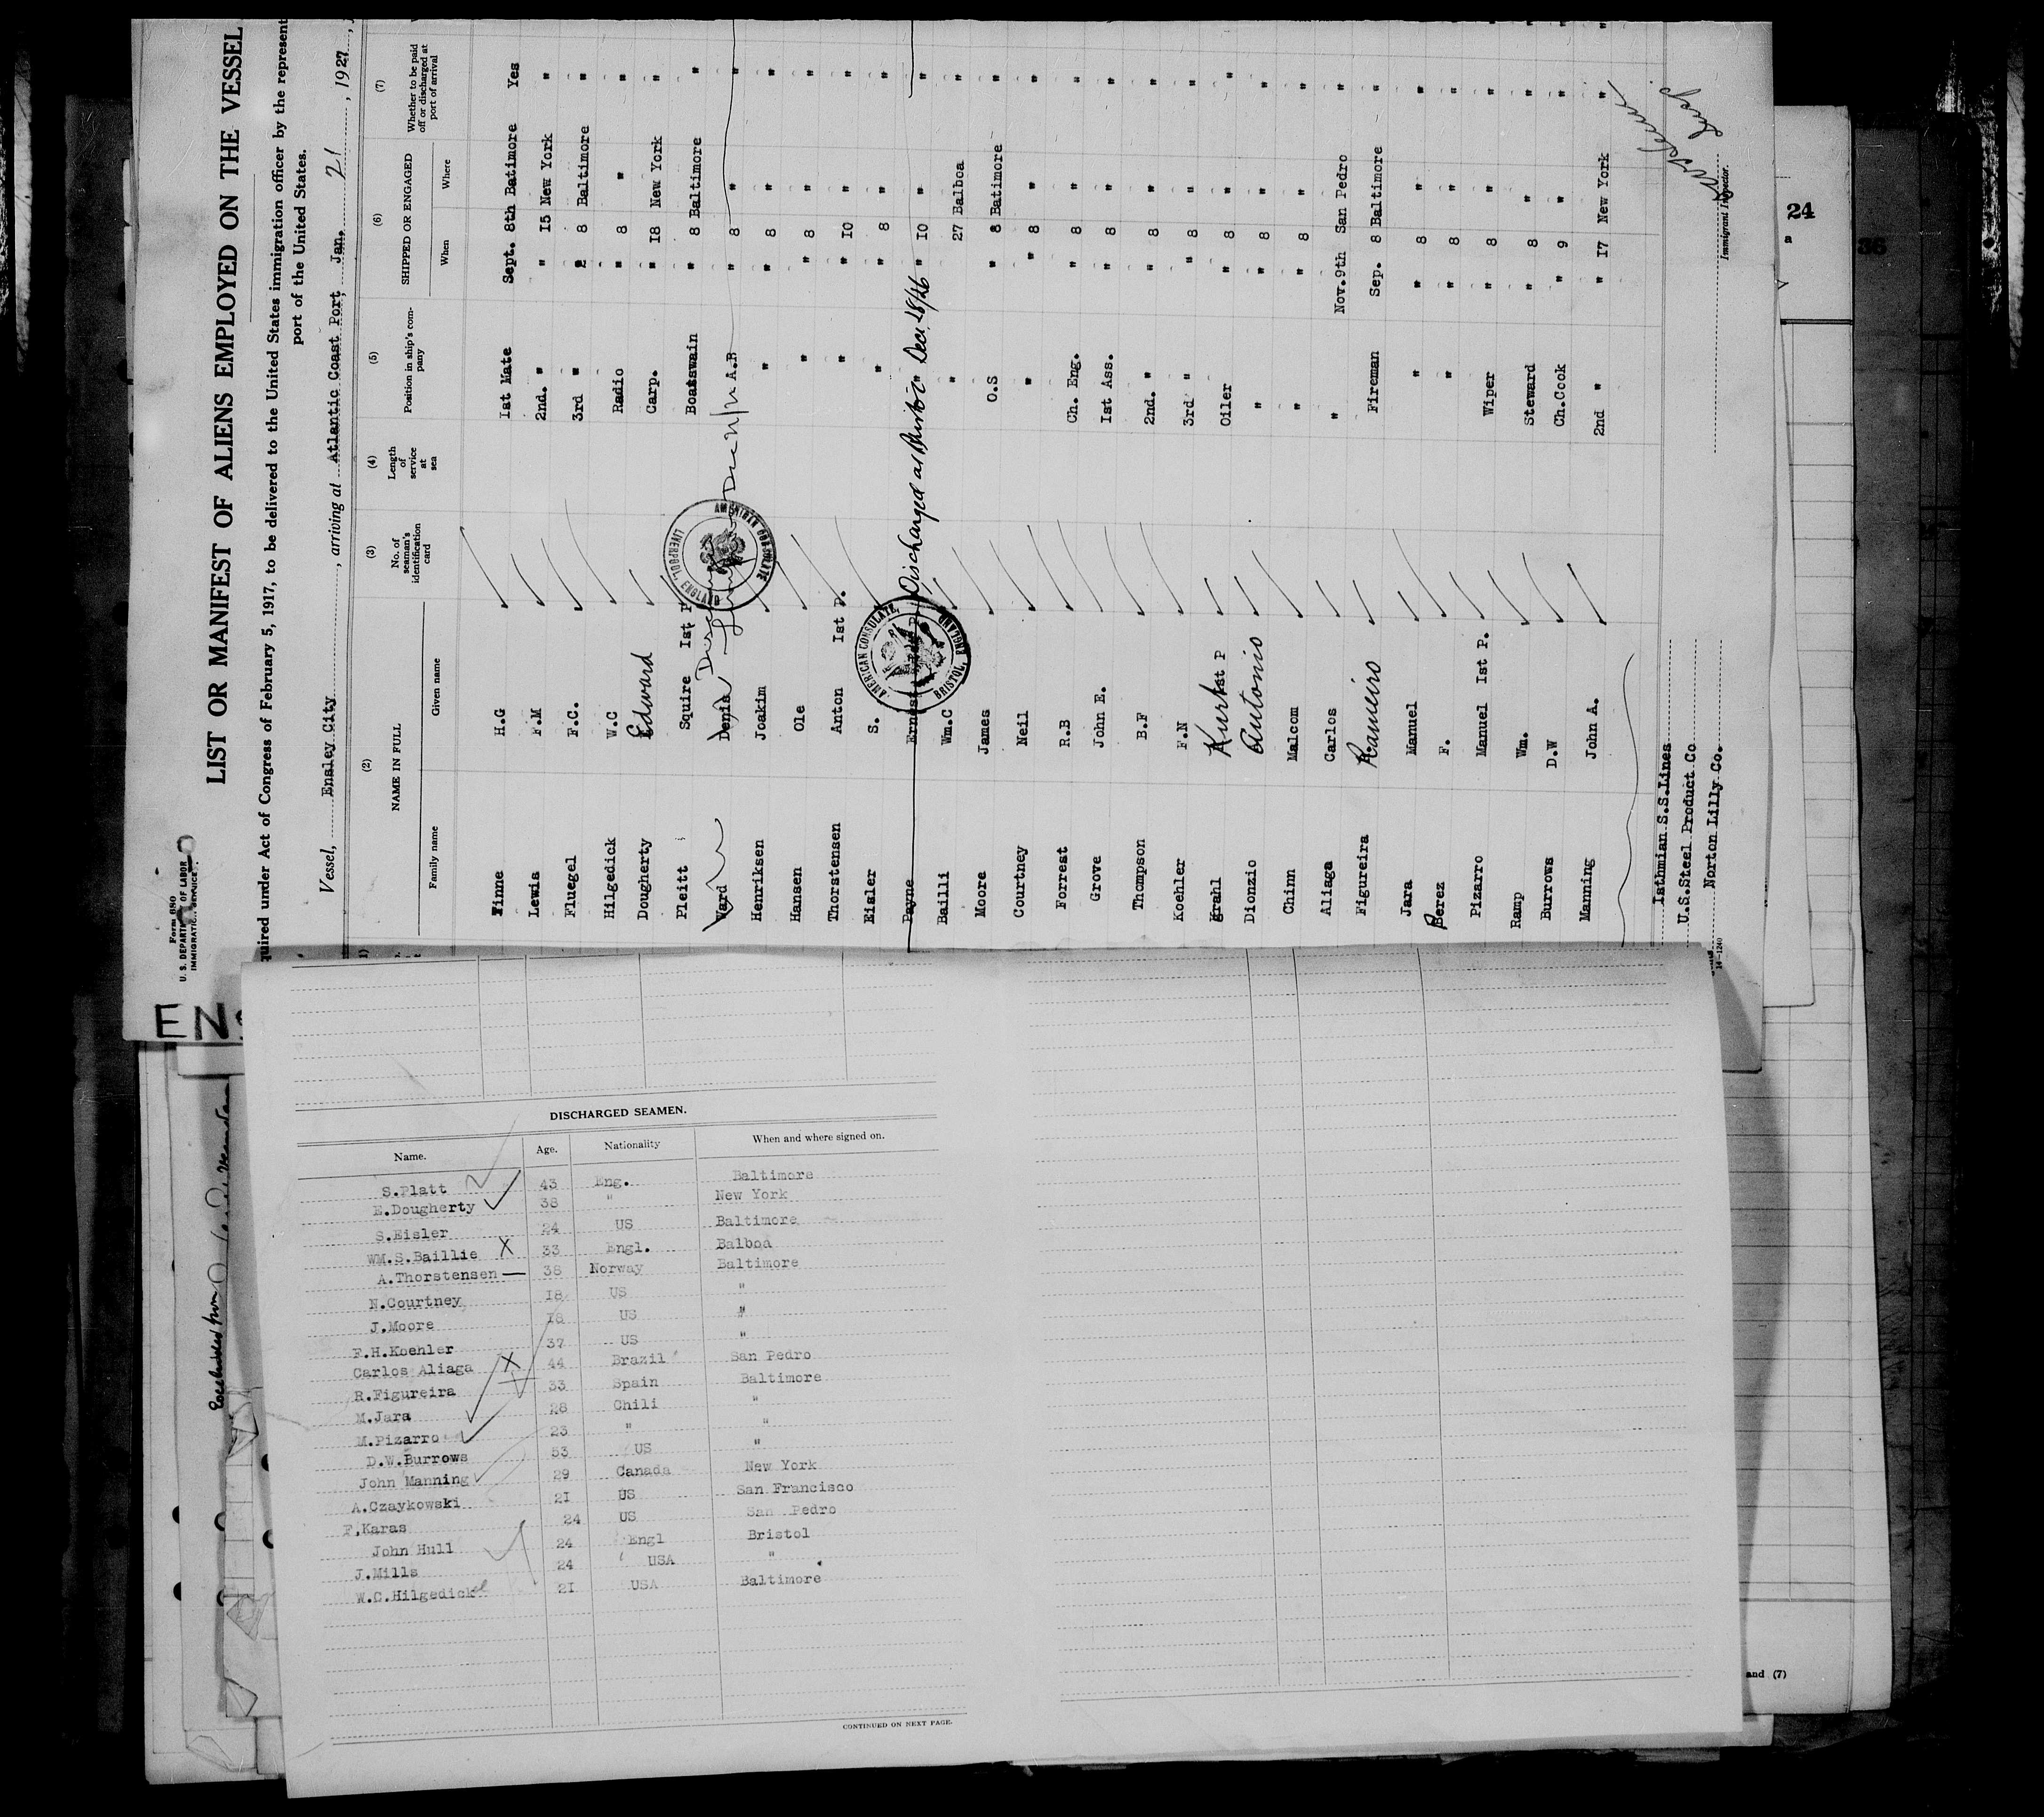 Form 680
U. S. DEPARTMENT OF LABOR
IMMIGRATION SERVICE
LIST OR MANIFEST OF ALIENS EMPLOYED ON THE VESSEL
quired under Act of Congress of February 5, 1917, to be delivered to the United States immigration officer by the represent
port of the United States.
Vessel, Ensley City, arriving at Atlantic Coast Port, Jan. 21, 1927,
(2) (3) (4) (5) (6) (7)
NAME IN FULL
Family name Given name
No. of seaman's identification card
Length of service at sea
Position in ship's company
SHIPPED OR ENGAGED
When Where
Whether to be paid off or discharged at port of arrival
Finne H.G 1st Mate Sept. 8th Batimore Yes
Lewis F.M 2nd. " " 15 New York "
Fluegel F.C. 3rd " " 8 Baltimore "
Hilgedick W.C Radio " 8 " "
Dougherty Edward Carp. " 18 New York "
Pleitt Squire Ist P Boatswain " 8 Baltimore "
Ward Denis A.B " 8 " "
Henriksen Joakim " " 8 " "
Hansen Ole " " 8 " "
Thorstensen Anton Ist P. " " 10 " "
Eisler S. " " 8 " "
Payne Ernest Discharged at Bristol Dec 28/26 " " 10 " "
Bailli Wm.C " 27 Balboa "
Moore James O.S " 8 Batimore "
Courtney Neil " " 8 " "
Forrest R.B Ch. Eng. " 8 " "
Grove John E. Ist Ass. " 8 " "
Thompson B.F 2nd. " " 8 " "
Koehler F.N 3rd " " 8 " "
Krahl Kurt Ist P Oiler " 8 " "
Dionzio Antonio " " 8 " "
Chinn Malcom " " 8 " "
Aliaga Carlos " Nov.9th San Pedro "
Figureira Rameiro Fireman Sep. 8 Baltimore "
Jara Manuel " " 8 " "
Perez F. " 8 "
Pizarro Manuel Ist P. Wiper " 8 " "
Ramp Wm. Steward " 8 " "
Burrows D.W Ch.Cook " 9 " "
Manning John A. 2nd " " 17 New York "
AMERICAN CONSULATE
LIVERPOOL, ENGLAND
AMERICAN CONSULATE,
BRISTOL, ENGLAND
Isthmian S.S.Lines
U.S.Steel Product Co
Norton Lilly Co.
Immigrant Inspector.
14-1240
24
36
EN
DISCHARGED SEAMEN.
Name. Age. Nationality When and where signed on.
S.Platt 43 Eng. Baltimore
E.Dougherty 38 " New York
S.Eisler 24 US Baltimore
WM.S.Baillie X 33 Engl. Balboa
A.Thorstensen 38 Norway Baltimore
N.Courtney 18 US "
J.Moore 18 US "
F.H.Koehler 37 US "
Carlos Aliaga X 44 Brazil San Pedro
R.Figureira 33 Spain Baltimore
M.Jara 28 Chili "
M.Pizarro 23 " "
D.W.Burrows 53 US "
John Manning 29 Canada New York
A.Czaykowski 21 US San Francisco
F.Karas 24 US San Pedro
John Hull 24 Engl Bristol
J.Mills 24 USA "
W.C.Hilgedick 21 USA Baltimore
CONTINUED ON NEXT PAGE.
and (7)